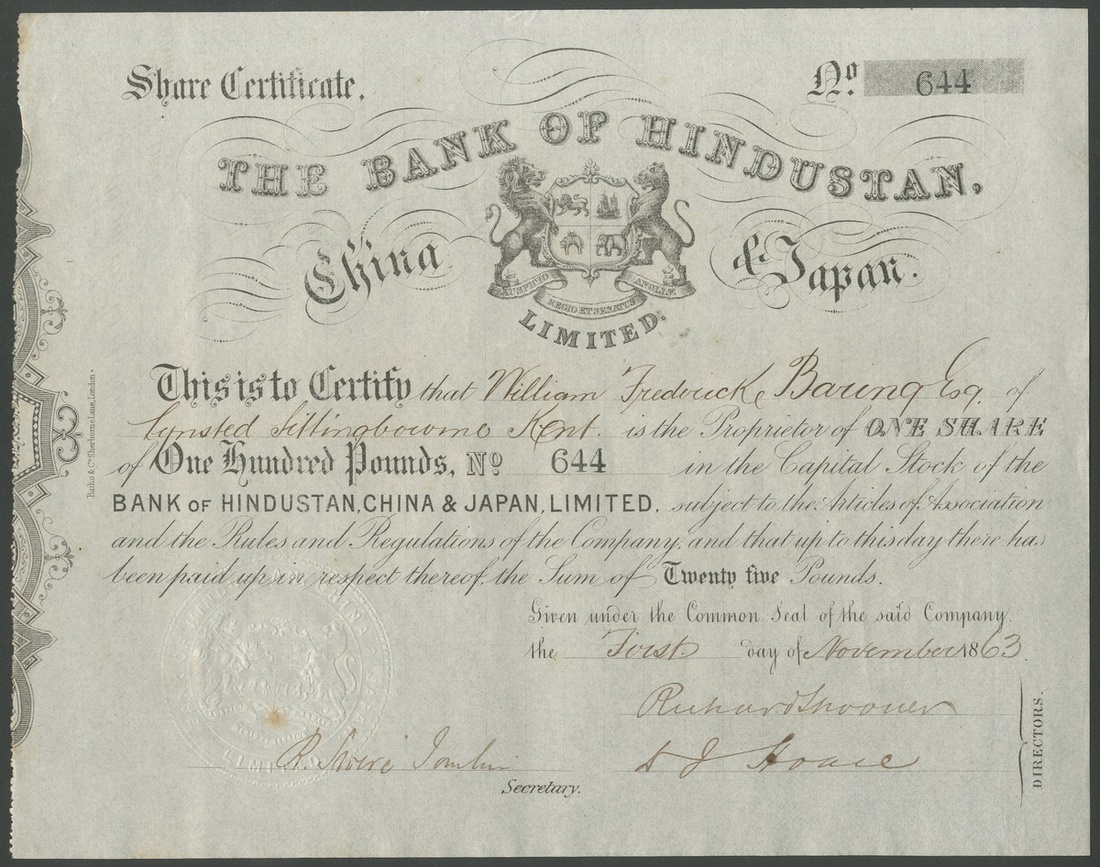 Share Certificate.
No. 644
THE BANK OF HINDUSTAN,
China & Japan.
AUSPICIO REGIO ET SENATUS ANGLIÆ
LIMITED.
This is to Certify that William Frederick Baring Esq. of
Lynsted Sittingbourne Kent. is the Proprietor of ONE SHARE
of One Hundred Pounds, No 644 in the Capital Stock of the
BANK OF HINDUSTAN, CHINA & JAPAN, LIMITED. subject to the Articles of Association
and the Rules and Regulations of the Company, and that up to this day there has
been paid up in respect thereof, the Sum of Twenty five Pounds.
Given under the Common Seal of the said Company
the First day of November 1863
Richard Spooner
Hoare
DIRECTORS.
Secretary.
LIMITED